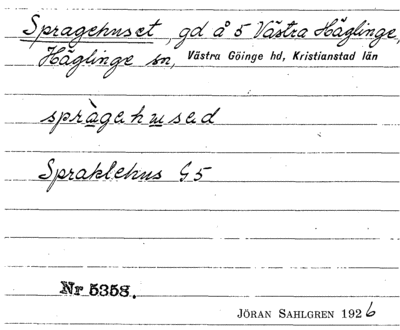 Spragehuset, gd å 5 Västra Häglinge,
Häglinge sn, Västra Göinge hd, Kristianstad län
spràgehused
Spraklehus G5
Nr 5358.
JÖRAN SAHLGREN 1926